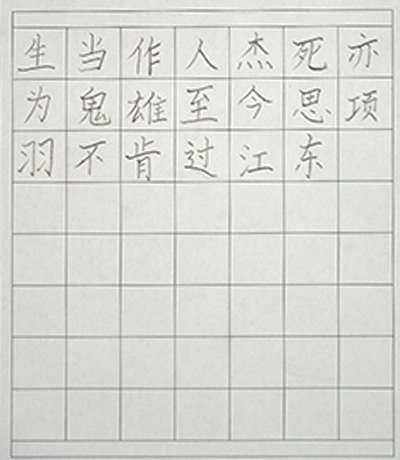 生当作人杰死亦
为鬼雄至今思项
羽不肯过江东